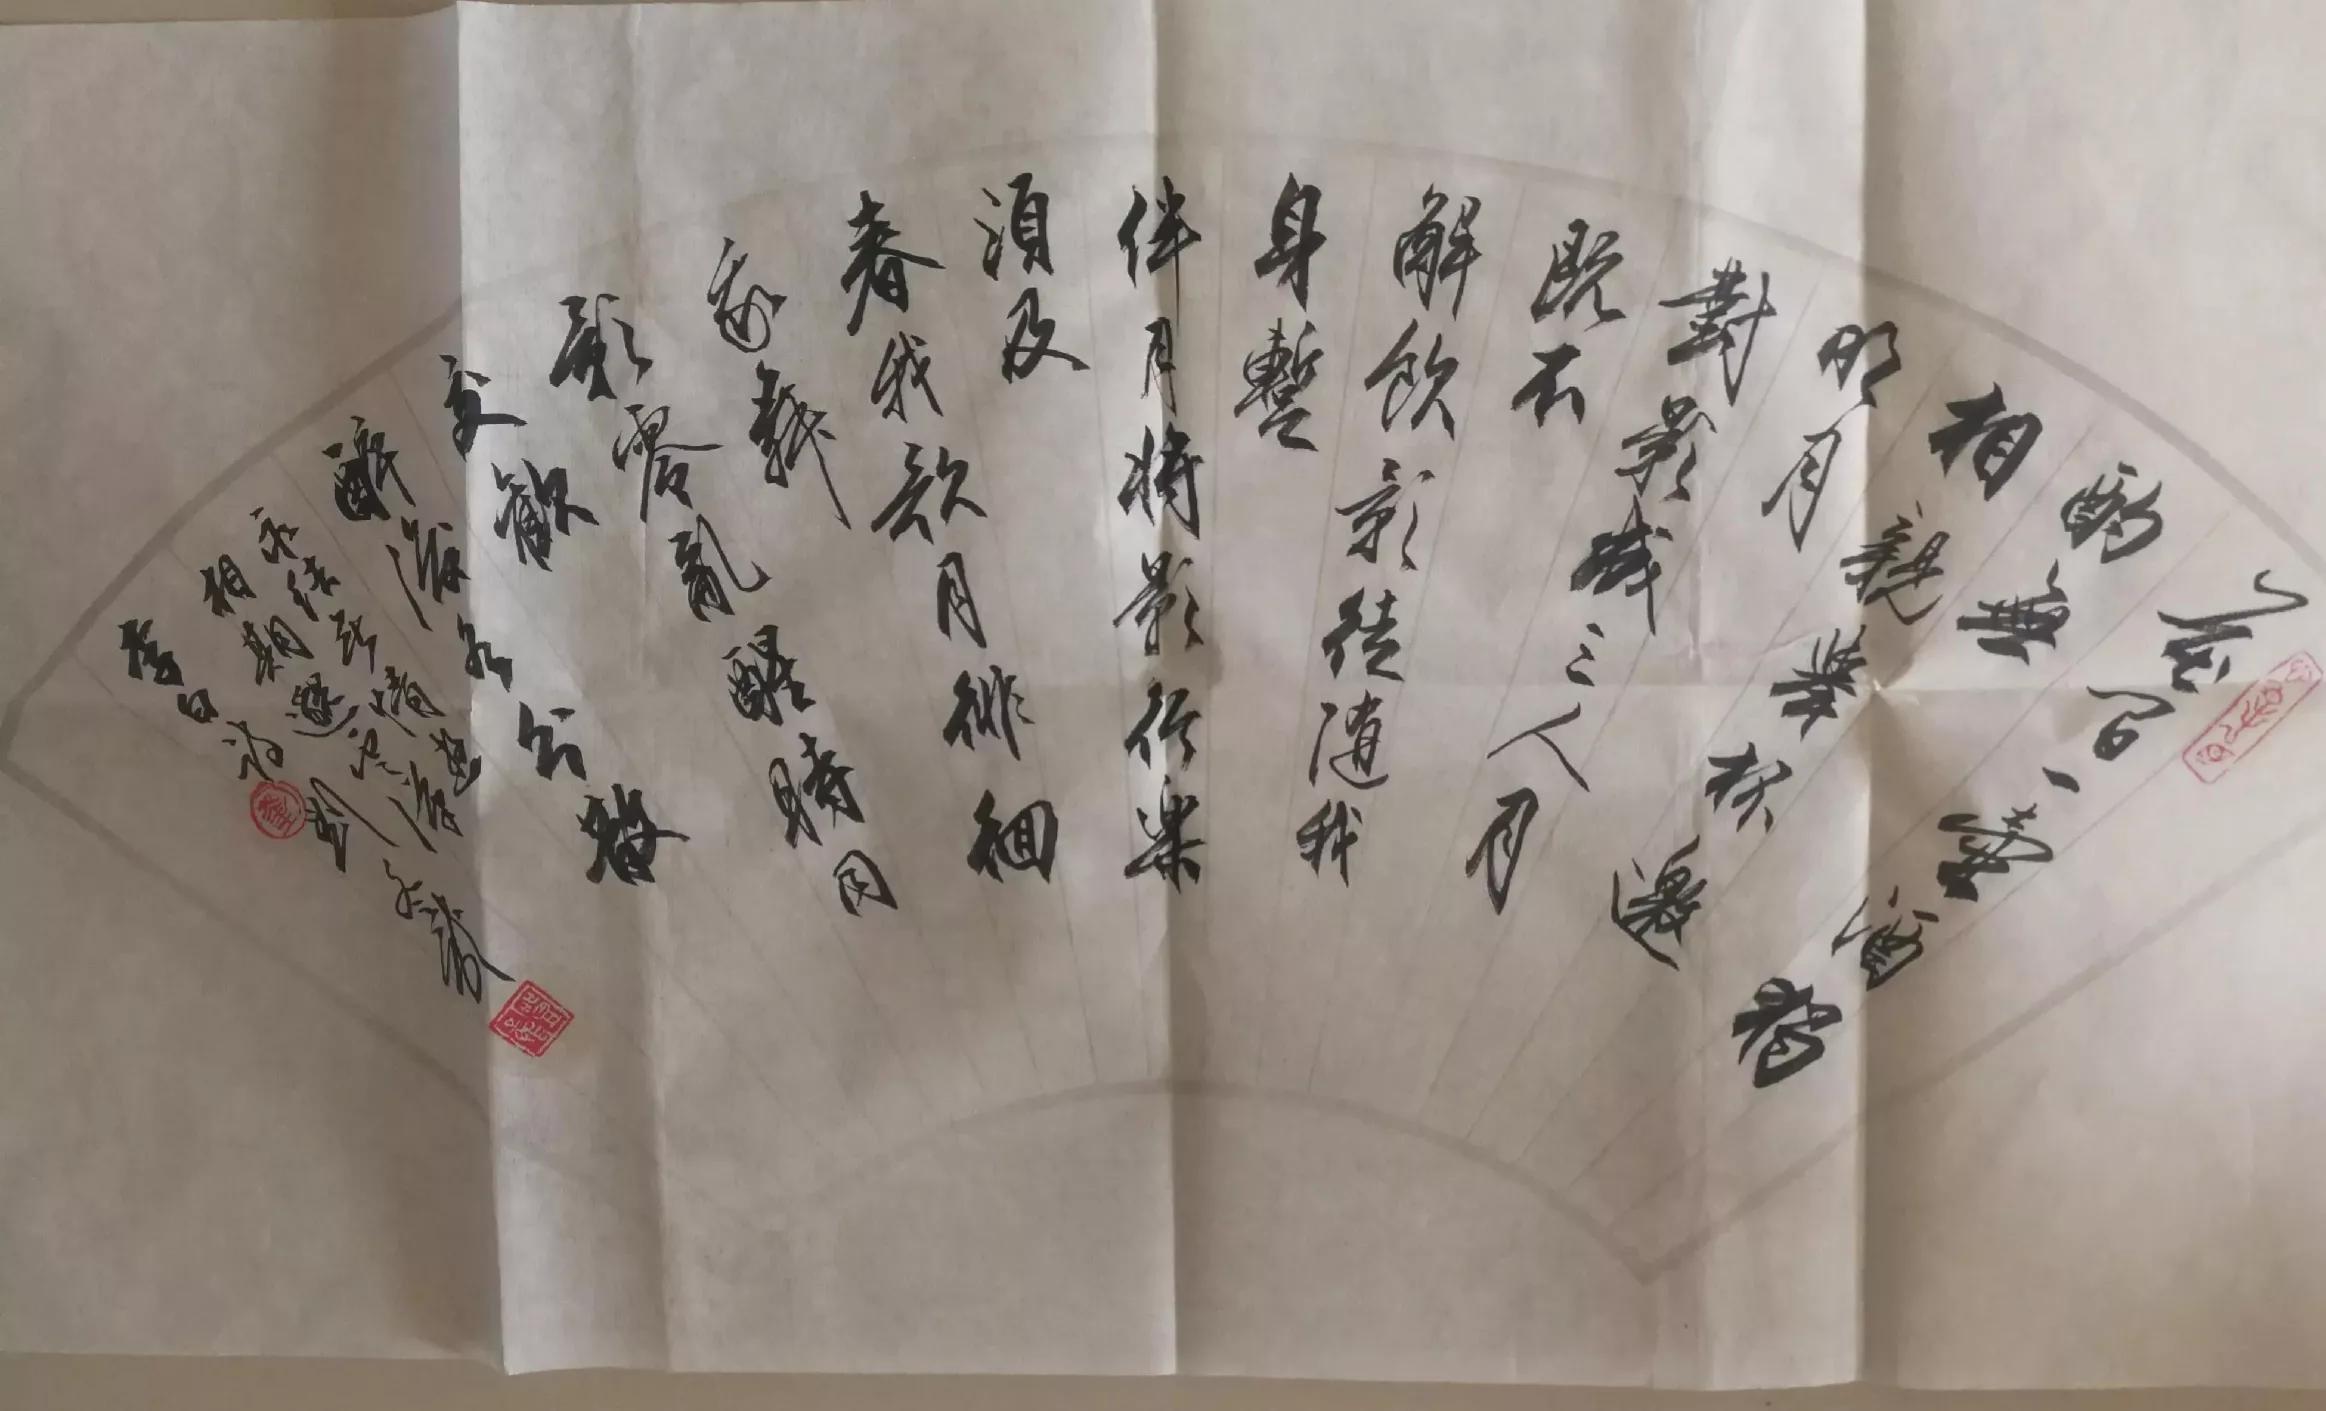 花間一壺酒獨
酌無
相親舉杯邀
明月
對影成三人月
既不
解飲影徒隨我
身暫
伴月將影行樂
須及
春我歌月徘徊
我舞
影零亂醒時同
交歡
醉後各分散
永結無情遊
相期邈雲漢
李白詩